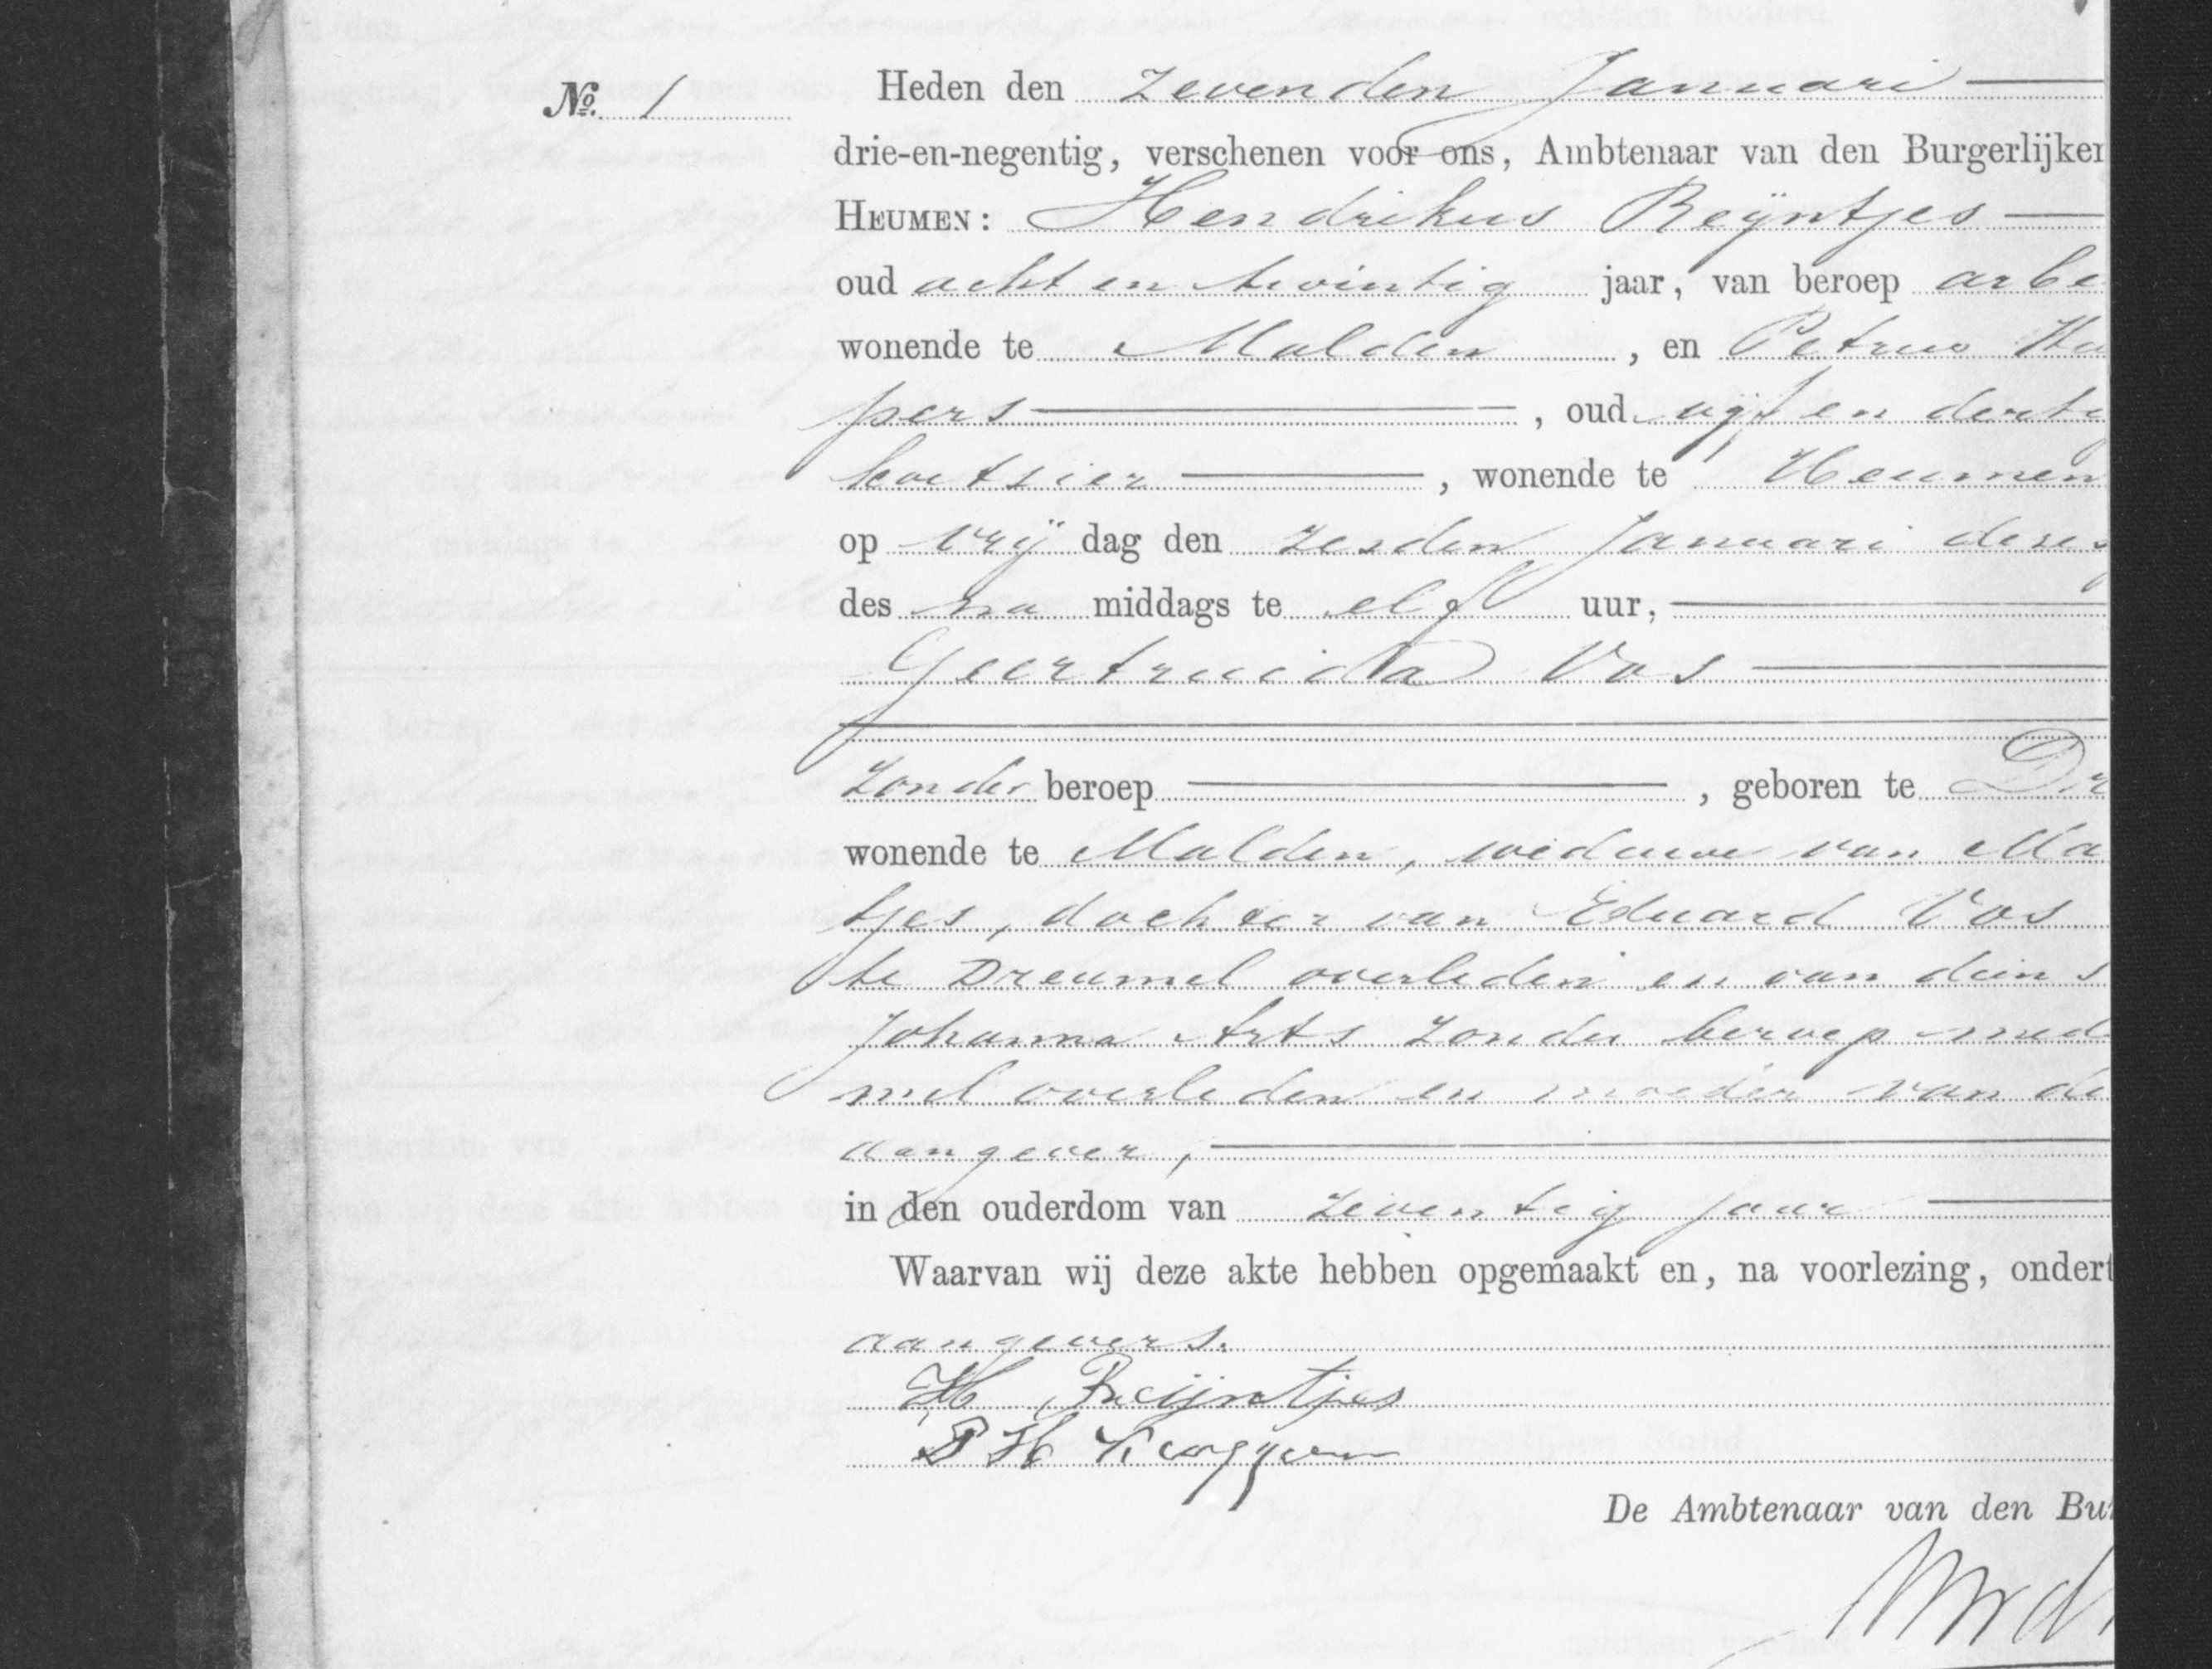 No. 1
Heden den zevenden Januari
drie-en-negentig, verschenen voor ons, Ambtenaar van den Burgerlijken
HEUMEN: Hendrikus Reÿntjes
oud acht en twintig jaar, van beroep arbe
wonende te Malden, en Petrus
pers, oud vijf en derti
koetsier, wonende te Heumen
op vrij dag den zesden Januari dezes
des na middags te elf uur,
Geertruida Vos
zonder beroep, geboren te Dr
wonende te Malden, weduwe van Ma
tjes, dochter van Eduard Vos
te Dreumel overleden en van diens
Johanna Arts zonder beroep mede
mel overleden en moeder van de
aangever,
in den ouderdom van zeventig jaar
Waarvan wij deze akte hebben opgemaakt en, na voorlezing, ondert
aangevers.
H Reijntjes
P H
De Ambtenaar van den Bur